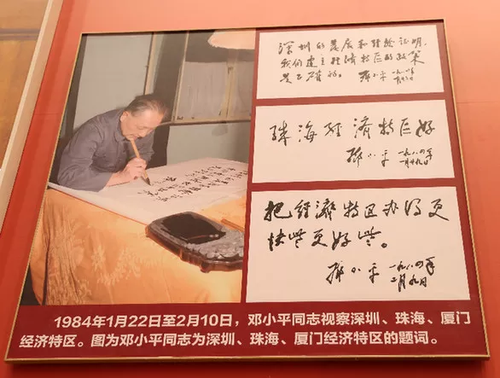 深圳的发展和经验证明,
我们建立经济特区的政策
是正确的。
邓小平 一九八四年
珠海经济特区好
邓小平 一九八四年
一月廿九日
把经济特区办得更
快些更好些。
邓小平 一九八四年
二月九日
1984年1月22日至2月10日，邓小平同志视察深圳、珠海、厦门
经济特区。图为邓小平同志为深圳、珠海、厦门经济特区的题词。